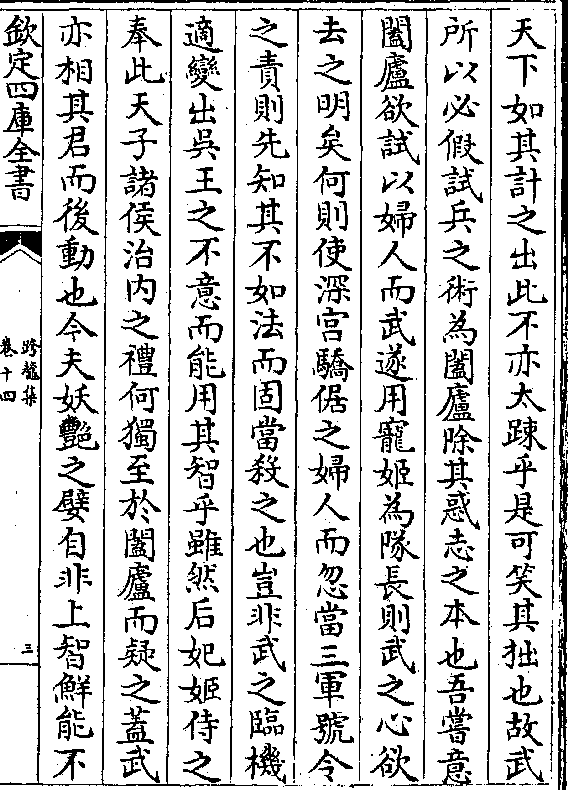 天下如其計之出此不亦太踈乎是可笑其拙也故武
所以必假試兵之術為闔廬除其惑志之本也吾嘗意
闔廬欲試以婦人而武遂用寵姬為隊長則武之心欲
去之明矣何則使深宮驕倨之婦人而忽當三軍號令
之責則先知其不如法而固當殺之也豈非武之臨機
適變出吳王之不意而能用其智乎雖然后妃姬侍之
奉此天子諸侯治內之禮何獨至於闔廬而疑之蓋武
亦相其君而後動也今夫妖艷之嬖自非上智鮮能不
欽定四庫全書
跨鼇集
卷十四
三